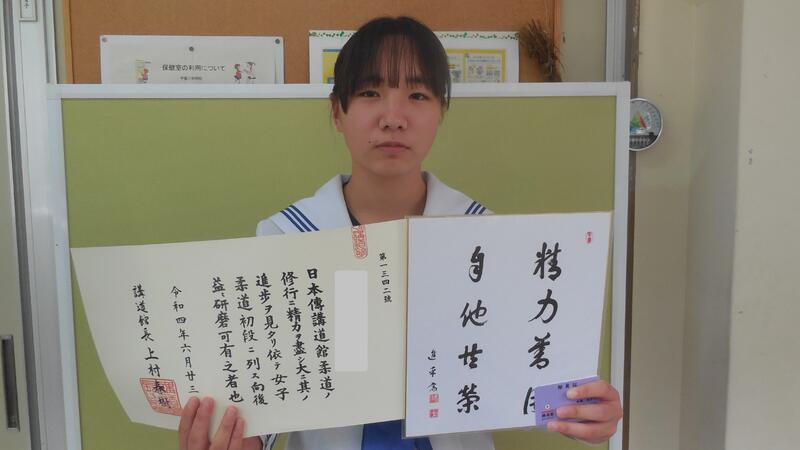 保健室の利用について
第一三四二號
日本傳講道館柔道ノ
修行ニ精力ヲ盡シ大ニ其ノ
進歩ヲ見タリ依テ女子
柔道初段ニ列ス向後
益々研磨可有之者也
令和四年六月廿三
講道館長 上村春樹
精力善用
自他共榮